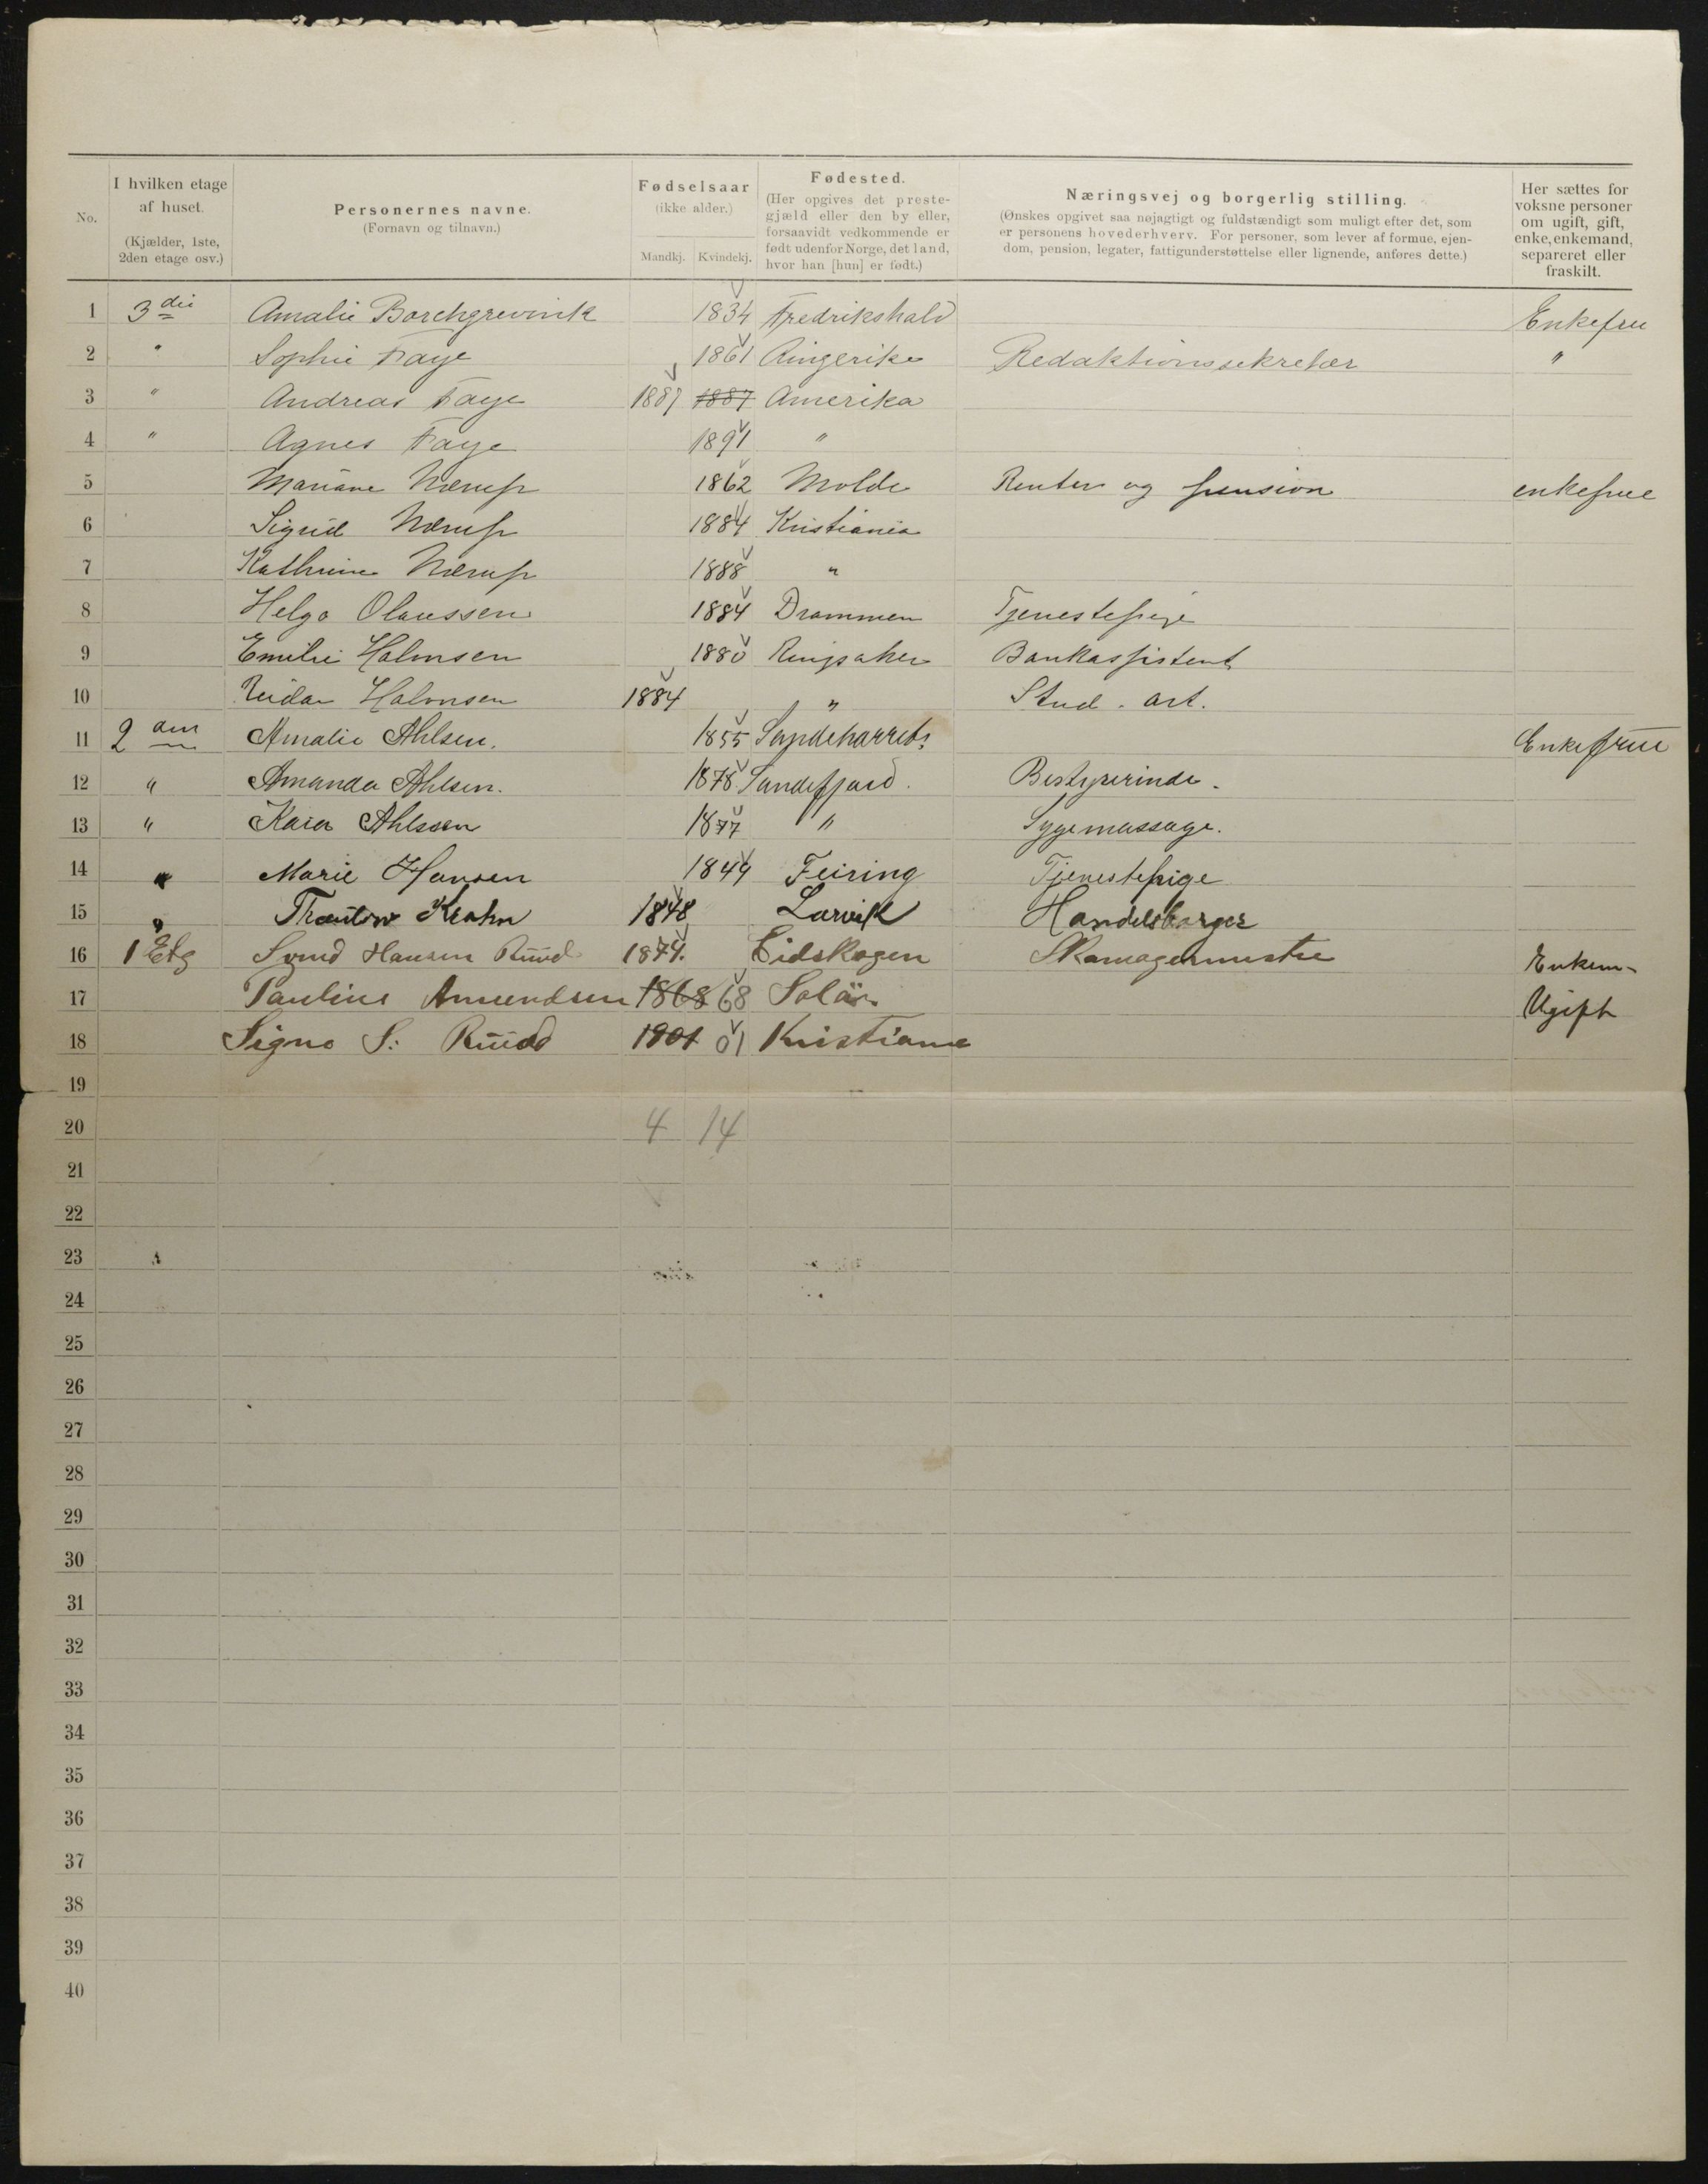 No. I hvilken etage af huset. (Kjælder, 1ste, 2den etage osv.) Personernes navne. (Fornavn og tilnavn.) Fødselsaar (ikke alder.) Mandkj. Kvindekj. Fødested. (Her opgives det prestegjæld eller den by eller, forsaavidt vedkommende er født udenfor Norge, det land, hvor han [hun] er født.) Næringsvej og borgerlig stilling. (Ønskes opgivet saa nøjagtigt og fuldstændigt som muligt efter det, som er personens hovederhverv. For personer, som lever af formue, ejendom, pension, legater, fattigunderstøttelse eller lignende, anføres dette.) Her sættes for voksne personer om ugift, gift, enke, enkemand, separeret eller fraskilt.
1 3die Amalie Borchgrevink 1834 Fredrikshald Enkefru
2 " Sophie Faye 1861 Ringerike Redaktionssekretær "
3 " Andreas Faye 1887 1887 Amerika
4 " Agnes Faye 1891 "
5 Mariane Nærup 1862 Molde Renter og pension enkefrue
6 Sigrid Nærup 1884 Kristiania
7 Kathrine Nærup 1888 "
8 Helga Olaussen 1884 Drammen Tjenestepige
9 Emilie Holmsen 1880 Ringsaker Bankassistent
10 Reidar Holmsen 1884 " Stud. art.
11 2den Amalie Ahlsen. 1855 Enkefrue
12 " Amanda Ahlsen. 1878 Sandefjord. Bestyrerinde.
13 " Kaia Ahlsen 1877 " Sygemassage.
14 " Marie Hansen 1849 Feiring Tjenestepige
15 " Krohn 1848 Larvik Handelsborger
16 1 Etg Hansen Ruud 1874. Eidskogen Skomagermester Enkem-
17 Pauline Amundsen 1868 68 Solør Ugift
18 Signe S: Ruud 1901 01 Kristiania
19
20 4 14
21
22
23
24
25
26
27
28
29
30
31
32
33
34
35
36
37
38
39
40